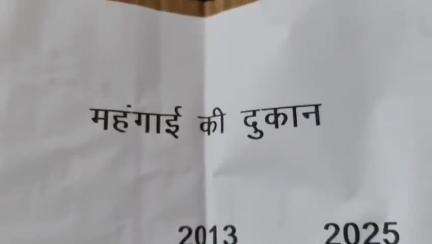 महंगाई की दुकान
2013 2025